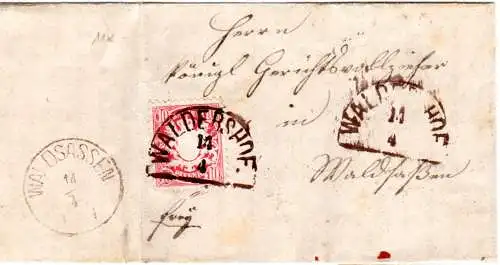 Herrn
Königl Gerichtsvollzieher
in
Waldsaßen
frei
WALDERSHOF.
14
4
WALDERSHOF
14
4
WALDSASSEN
14
10